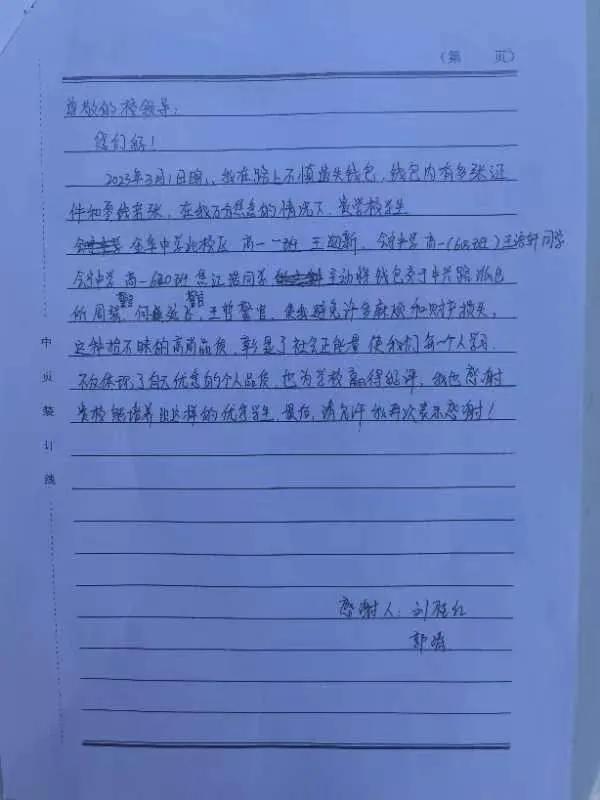 （第 页）
尊敬的校领导：
您们好！
2023年3月1日晚，我在路上不慎遗失钱包，钱包内有多张证
件和零钱若张，在我万分焦急的情况下，贵学校学生
金华中学北校区 高一一班 王 新、 高一（6班）王浩轩同学
高一 班 同学 主动将钱包交于中兴路派出
所周 警官，何 警官，王哲警官，使我避免许多麻烦和财产损失。
这种拾不昧的高尚品质，彰显了社会正能量 使我们每一个人学习.
不仅体现了自己优秀的个人品质，也为学校赢得好评，我也感谢
贵校能培养出这样的优秀学生，最后，请允许我再次表示感谢！
感谢人：刘 红
郭
中页装订线